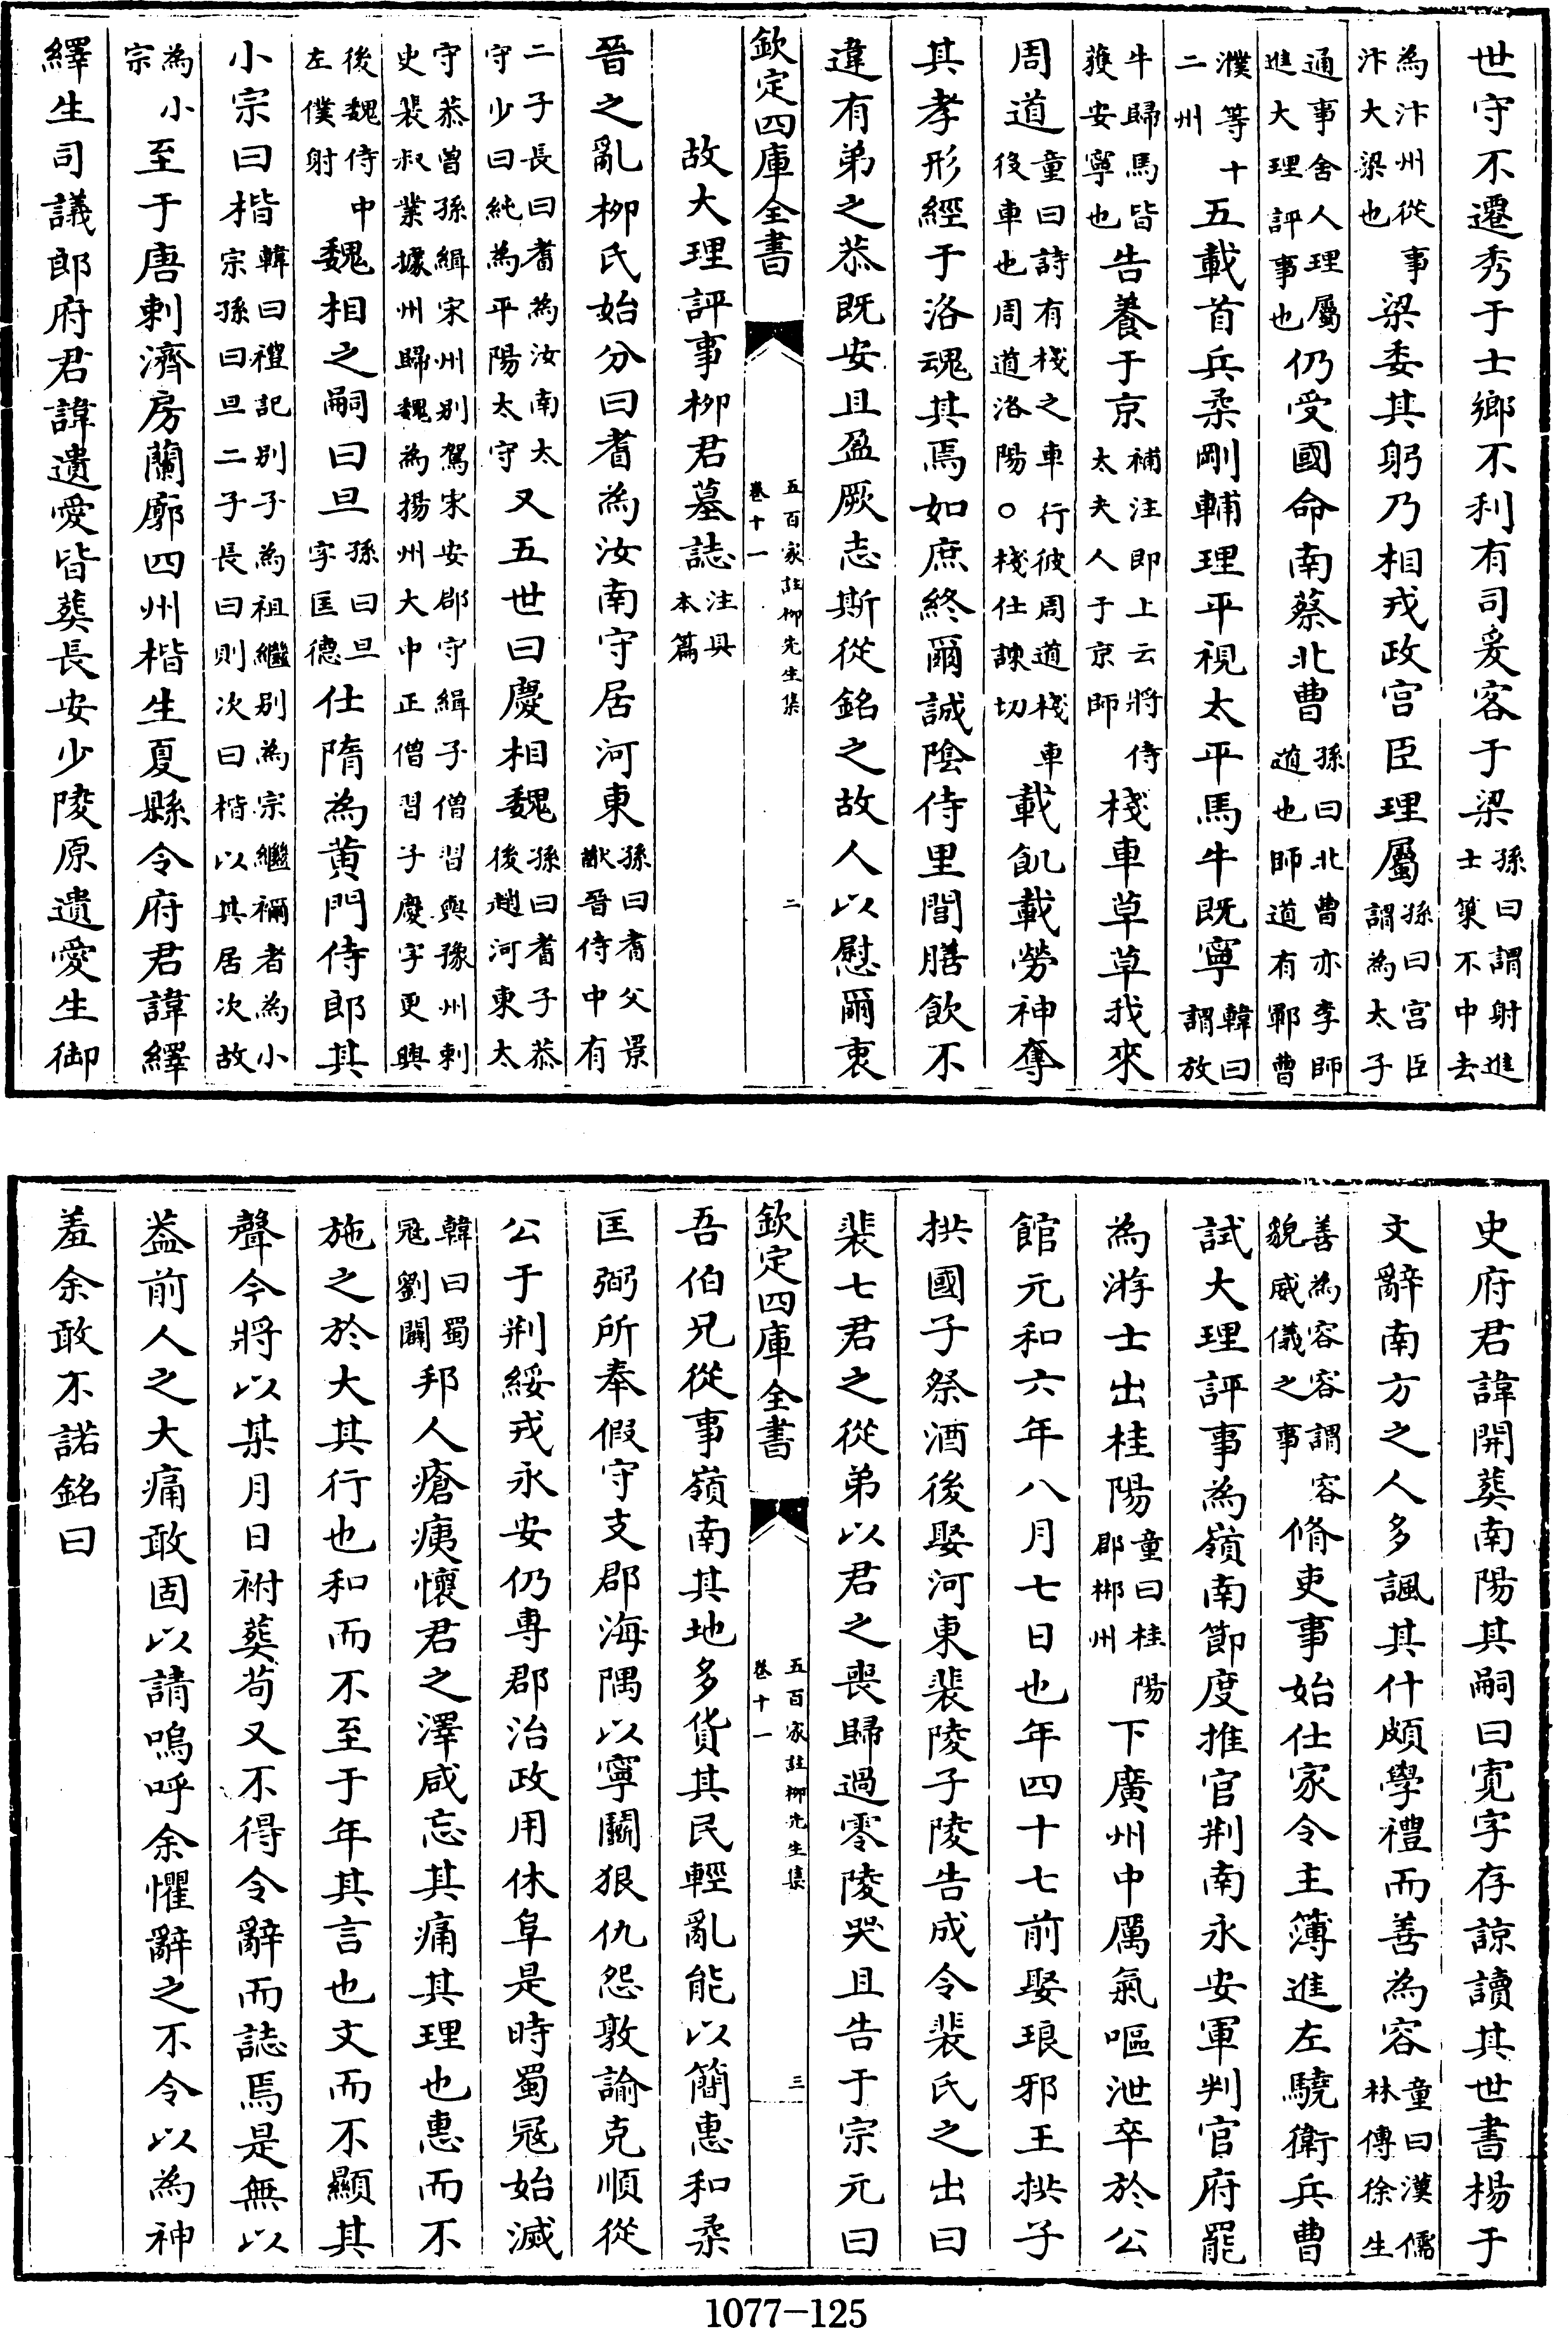 世守不遷秀于士鄉不利有司爰客于梁孫曰謂射進士策不中去
為汴州從事汴大梁也梁委其躬乃相戎政宫臣理屬孫曰宫臣謂為太子
通事舍人理屬進大理評事也仍受國命南蔡北曹孫曰北曹亦李師道也師道有鄆曹
濮等十二州五載首兵柔剛輔理平視太平馬牛既寧韓曰謂放
牛歸馬皆䕶安寧也告養于京補注即上云將侍太夫人于京師棧車草草我來
周道童曰詩有棧之車行彼周道棧車役車也周道洛陽○棧仕諫切載飢載勞神奪
其孝形經于洛魂其焉如庶終爾誠陰侍里閭膳飲不
違有弟之恭既安且盈厥志斯從銘之故人以慰爾衷
欽定四庫全書 五百家註柳先生集卷十一 二
故大理評事柳君墓誌注具本篇
晉之亂柳氏始分曰耆為汝南守居河東孫曰耆父景猷晉侍中有
二子長曰耆為汝南太守少曰純為平陽太守又五世曰慶相魏孫曰耆子恭後趙河東太
守恭曾孫緝宋州别駕宋安郡守緝子僧習與豫州刺史裴叔業據州歸魏為揚州大中正僧習子慶字更興
後魏侍中左僕射魏相之嗣曰旦孫曰旦字匡德仕隋為黄門侍郎其
小宗曰楷韓曰禮記别子為祖繼别為宗繼禰者為小宗孫曰旦二子長曰則次曰楷以其居次故
為小宗至于唐刺濟房蘭廓四州楷生夏縣令府君諱繹
繹生司議郎府君諱遺愛皆葬長安少陵原遺愛生御
史府君諱開葬南陽其嗣曰寛字存諒讀其世書楊于
文辭南方之人多諷其什頗學禮而善為容童曰漢儒林傳徐生
善為容容謂容貌威儀之事脩吏事始仕家令主簿進左驍衛兵曹
試大理評事為嶺南節度推官荆南永安軍判官府罷
為游士出桂陽童曰桂陽郡郴州下廣州中厲氣嘔泄卒於公
館元和六年八月七日也年四十七前娶琅邪王拱子
拱國子祭酒後娶河東裴陵子陵告成令裴氏之出曰
裴七君之從弟以君之喪歸過零陵哭且告于宗元曰
欽定四庫全書 五百家註柳先生集卷十一 三
吾伯兄從事嶺南其地多貨其民輕亂能以簡惠和柔
匡弼所奉假守支郡海隅以寧鬭狠仇怨敦諭克順從
公于荆綏戎永安仍専郡治政用休阜是時蜀冦始滅
韓曰蜀冦劉闢邦人瘡痍懷君之澤咸忘其痛其理也惠而不
施之於大其行也和而不至于年其言也文而不顯其
聲今將以某月日祔葬茍又不得令辭而誌焉是無以
葢前人之大痛敢固以請嗚呼余懼辭之不令以為神
羞余敢不諾銘曰
1077-125